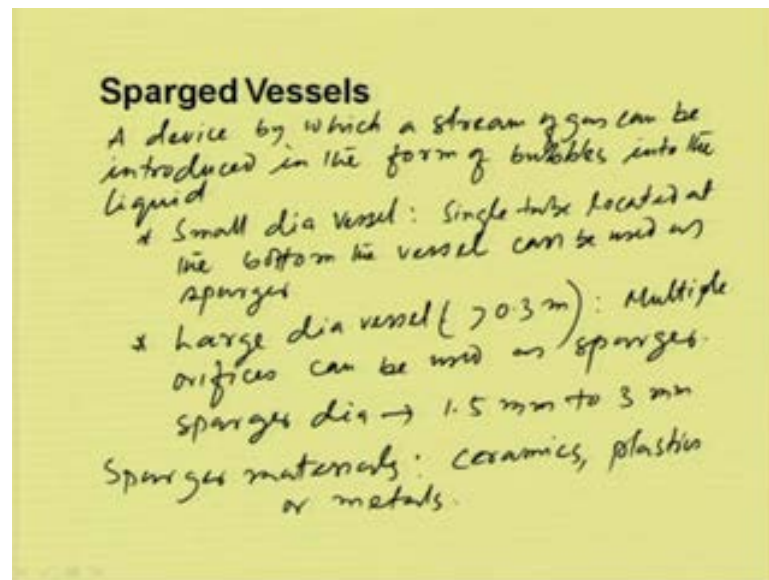 Sparged Vessels
A device by which a stream of gas can be
introduced in the form of bubbles into the
liquid
* Small dia vessel: Single tube located at
the bottom the vessel can be used as
sparger
* Large dia vessel (>0.3 m): Multiple
orifices can be used as sparger.
sparger dia → 1.5 mm to 3 mm
Sparger materials: ceramics, plastics
or metals.